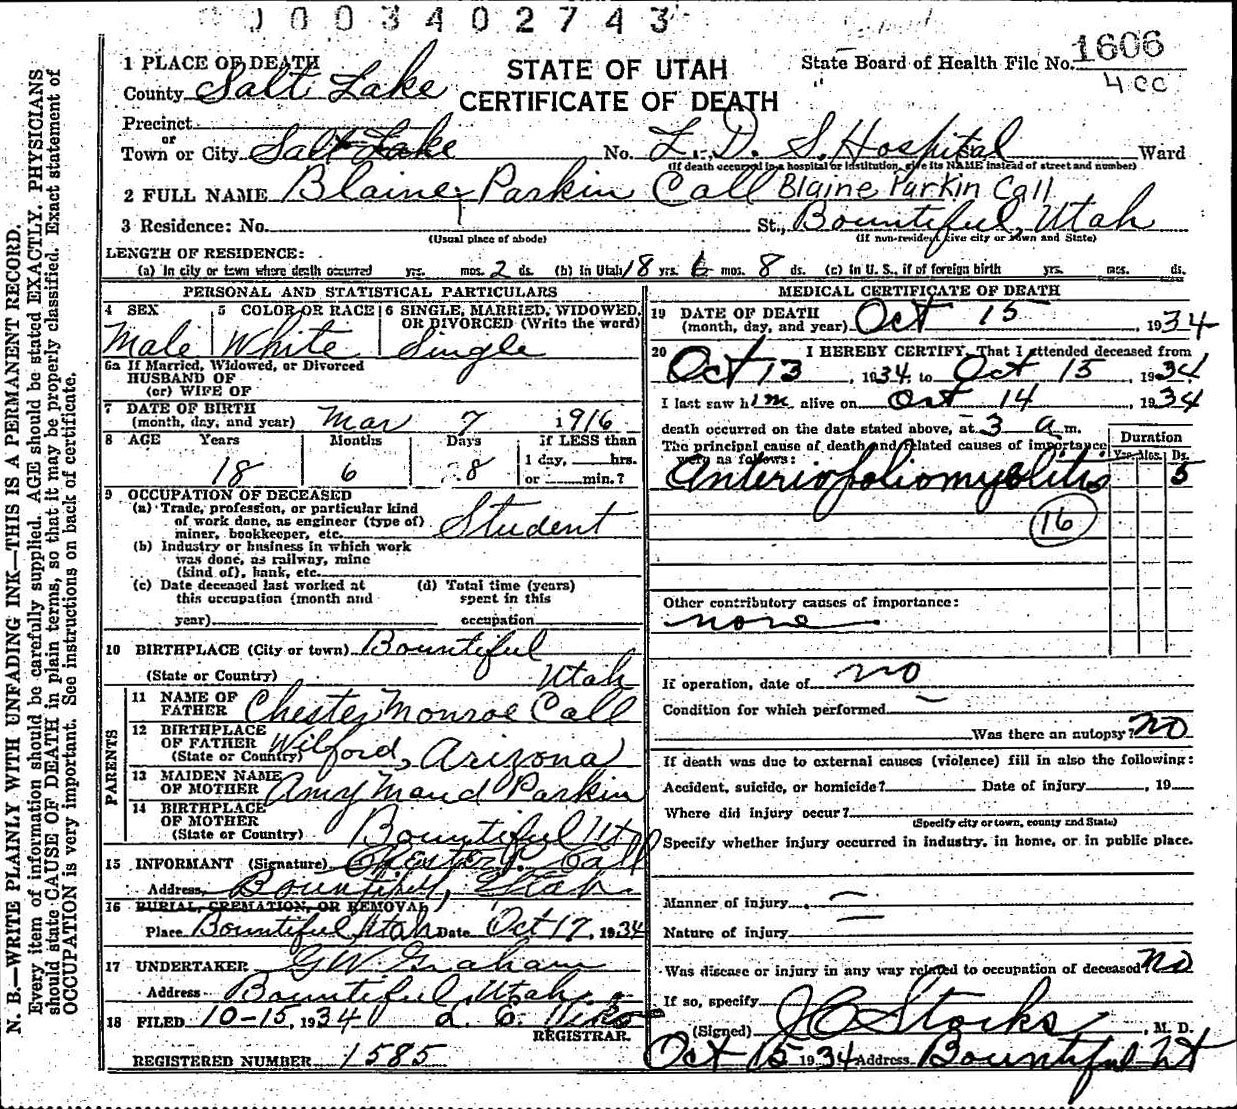 0 0 3 4 0 2 7 4 3
1606
4 cc
STATE OF UTAH
CERTIFICATE OF DEATH
State Board of Health File No.
1 PLACE OF DEATH
County Salt Lake
Precinct
or
Town or City Salt Lake No. L. D. S. Hospital St. Ward
(If death occurred in a hospital or institution, give its NAME instead of street and number)
2 FULL NAME Blaine Parkin Call Blaine Parkin Call
3 Residence: No. St., Bountiful, Utah
(Usual place of abode) (If non-resident give city or town and State)
LENGTH OF RESIDENCE:
(a) In city or town where death occurred yrs. mos. 2 ds. (b) In Utah 18 yrs. 6 mos. 8 ds. (c) In U. S., if of foreign birth yrs. mos. ds.
PERSONAL AND STATISTICAL PARTICULARS
4 SEX 5 COLOR OR RACE 6 SINGLE, MARRIED, WIDOWED, OR DIVORCED (Write the word)
Male White Single
6a If Married, Widowed, or Divorced
HUSBAND OF
(or) WIFE OF
7 DATE OF BIRTH
(month, day, and year) Mar 7 1916
8 AGE Years Months Days If LESS than
1 day, hrs.
18 6 8 or min.?
9 OCCUPATION OF DECEASED
(a) Trade, profession, or particular kind
of work done, as engineer (type of) Student
miner, bookkeeper, etc.
(b) Industry or business in which work
was done, as railway, mine
(kind of), bank, etc.
(c) Date deceased last worked at (d) Total time (years)
this occupation (month and spent in this
year) occupation
10 BIRTHPLACE (City or town) Bountiful
(State or Country) Utah
PARENTS
11 NAME OF
FATHER Chester Monroe Call
12 BIRTHPLACE
OF FATHER Wilford, Arizona
(State or Country)
13 MAIDEN NAME
OF MOTHER Amy Maud Parkin
14 BIRTHPLACE
OF MOTHER
(State or Country) Bountiful Utah
15 INFORMANT (Signature) Chester P. Call
Address Bountiful, Utah
16 BURIAL, CREMATION, OR REMOVAL
Place Bountiful Utah Date Oct 17, 1934
17 UNDERTAKER G W Graham
Address Bountiful, Utah
18 FILED 10-15, 1934
REGISTRAR.
REGISTERED NUMBER 1585
MEDICAL CERTIFICATE OF DEATH
19 DATE OF DEATH
(month, day, and year) Oct 15, 1934
20 I HEREBY CERTIFY, That I attended deceased from
Oct 13, 1934, to Oct 15, 1934
I last saw him alive on Oct 14, 1934
death occurred on the date stated above, at 3 a m.
The principal cause of death and related causes of importance
were as follows:
Duration
Yrs. Mos. Ds.
Anteriopoliomyelitis 5
16
Other contributory causes of importance:
none
If operation, date of no
Condition for which performed –
Was there an autopsy? No
If death was due to external causes (violence) fill in also the following:
Accident, suicide, or homicide? Date of injury , 19
Where did injury occur?
(Specify city or town, county and State)
Specify whether injury occurred in industry, in home, or in public place.
Manner of injury –
Nature of injury –
Was disease or injury in any way related to occupation of deceased No
If so, specify
(Signed) J C Stocks, M. D.
Oct 15 1934 Address Bountiful Ut
N. B.—WRITE PLAINLY WITH UNFADING INK—THIS IS A PERMANENT RECORD.
Every item of information should be carefully supplied. AGE should be stated EXACTLY. PHYSICIANS
should state CAUSE OF DEATH in plain terms, so that it may be properly classified. Exact statement of
OCCUPATION is very important. See instructions on back of certificate.